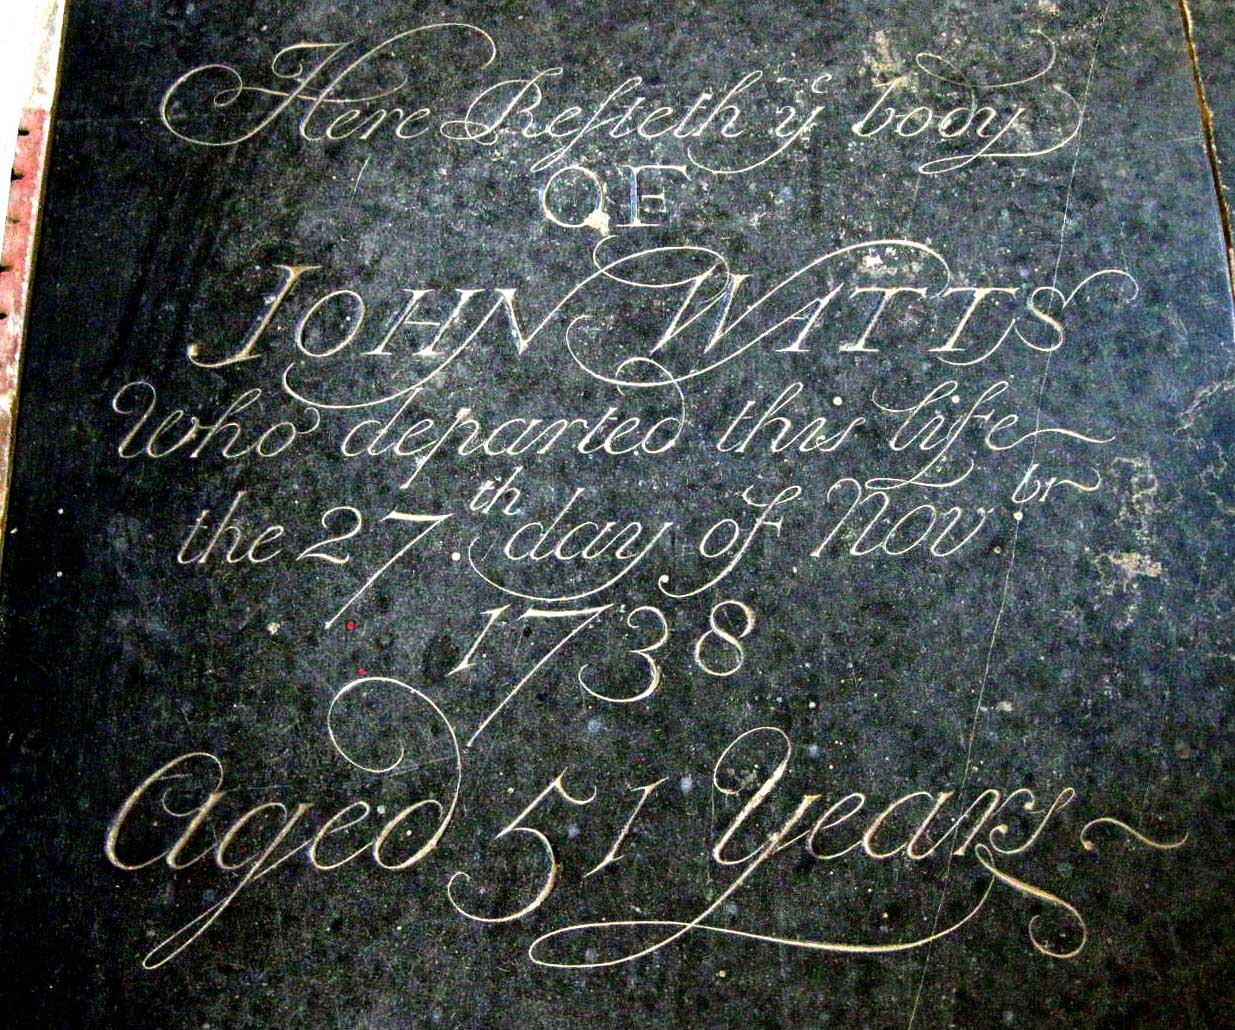 Here Resteth yᵉ body
OF
JOHN WATTS
Who departed this life
the 27.th day of Novbr
1738
Aged 51 Years